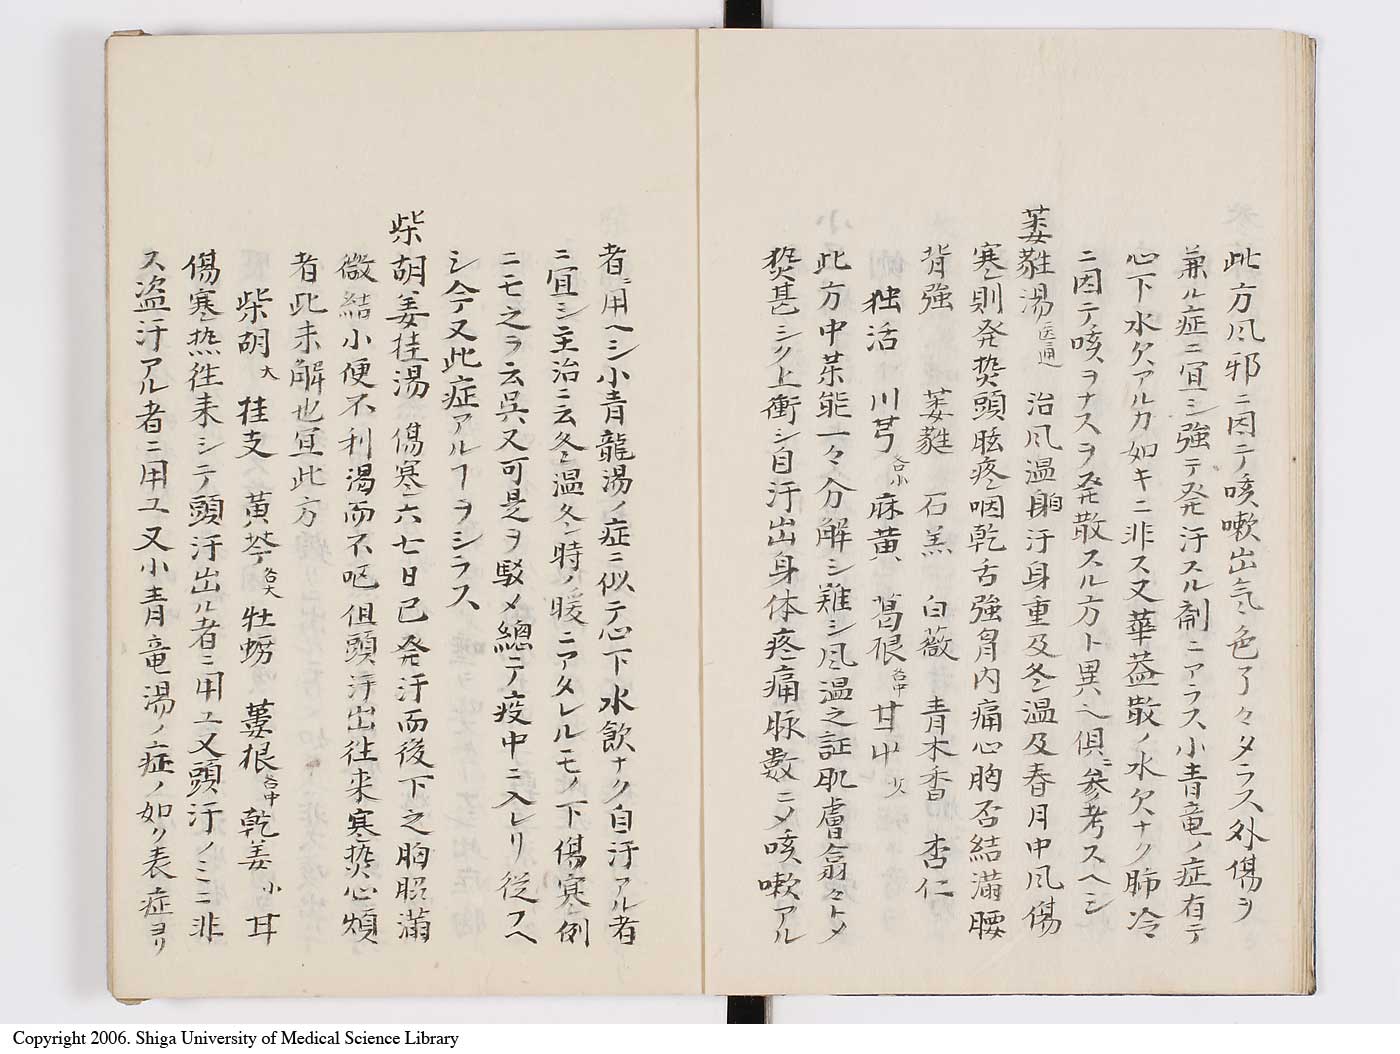 此方风邪ニ因テ咳嗽出气色了々タラス外傷ヲ
兼ル症ニ冝シ強テ発汗スル剤ニアラス小青竜ノ症有テ
心下水欠アルカ如キニ非ス又華蓋散ノ水欠ナク肺冷
ニ因テ咳ヲナスヲ発散スル方ト異也俱ニ参考スヘシ
葳蕤湯 医通 治风温自汗身重及冬温及春月中风傷
寒則発熱頭眩疼咽乾舌強胷内痛心胸否結満腰
背強 葳蕤 石羔 白薇 青木香 杏仁
独活 川芎各小 麻黄 葛根各中 甘艸少
此方中茱能一々分解シ難シ风温之証肌膚翕々トメ
熱甚シク上衝シ自汗出身体疼痛脉數ニメ咳嗽アル
者ニ用ヘシ小青龍湯ノ症ニ似テ心下水飲ナク自汗アル者
ニ冝シ主治ニ云冬温冬時ノ暖ニアタレルモノ下傷寒例
ニモ之ヲ云呉又可是ヲ駁メ總テ疫中ニ入レリ従フヘ
シ今又此症アルヿヲシラス
柴胡姜桂湯 傷寒六七日已発汗而後下之胸脇満
微結小便不利渇而不呕但頭汗出往来寒熱心煩
者此未解也冝此方
柴胡大 桂支 黄芩各大 牡蛎 蔞根各中 乾姜小 甘
傷寒热往来シテ頭汗出ル者ニ用ユ又頭汗ノミニ非
ス盗汗アル者ニ用ユ又小青竜湯ノ症ノ如ク表症ヨリ
Copyright 2006. Shiga University of Medical Science Library